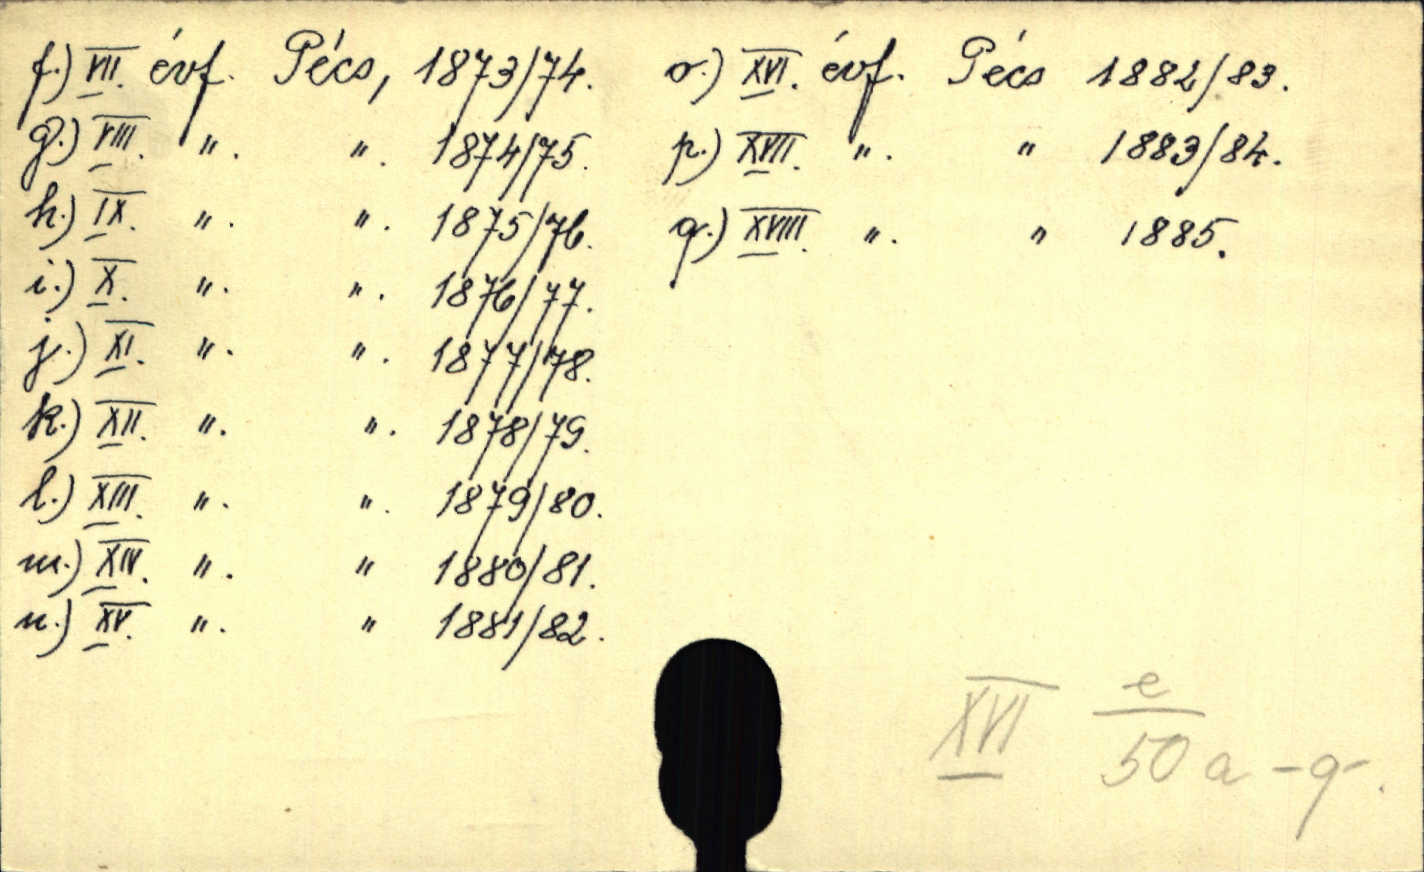 f.) VII. évf. Pécs, 1873/74.
g.) VIII. ". ". 1874/75.
h.) IX. ". ". 1875/76.
i.) X. ". ". 1876/77.
j.) XI. ". ". 1877/78.
k.) XII. ". ". 1878/79.
l.) XIII. ". ". 1879/80.
m.) XIV. ". " 1880/81.
n.) XV. ". " 1881/82.
o.) XVI. évf. Pécs 1882/83.
p.) XVII. ". " 1883/84.
q.) XVIII. ". " 1885.
XVI e
50 a-q.